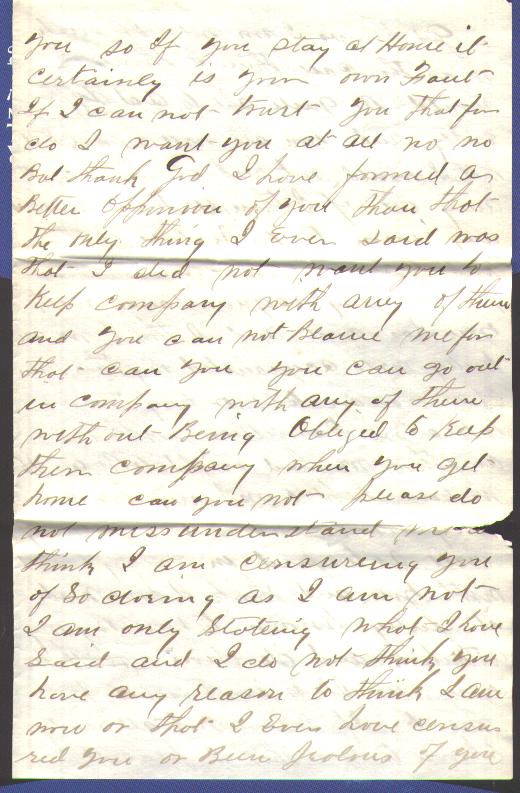 you so If you stay at Home it
certainly is your own Fault
If I can not trust you that far
do I want you at all no no
But thank God I have formed a
Better Oppinion of you than that
the only thing I Ever said was
that I did not want you to
Keep company with any of them
and you can not Blame me for
that can you you can go out
in company with any of them
with out Being Obliged to Keep
them company when you get
home can you not please do
not missunderstand
think I am censureing you
of So doeing as I am not
I am only Stateing what I have
Said and I do not think you
have any reason to think I am
now or that I Ever have censu
red you or Been Jealous of you